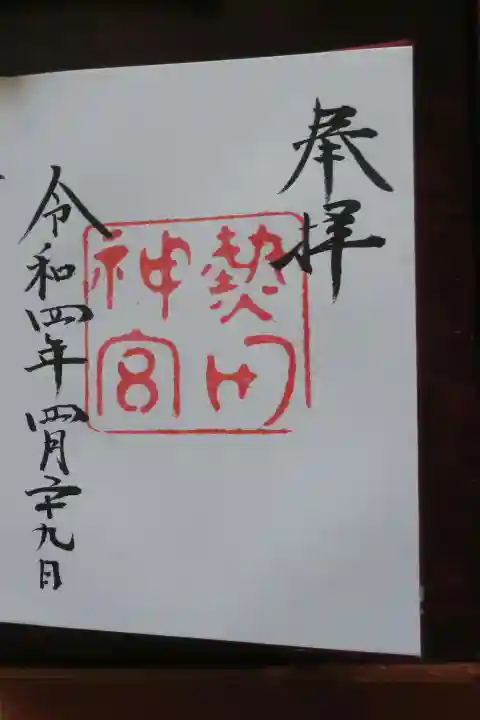 奉拝
熱田
神宮
令和四年四月二十九日